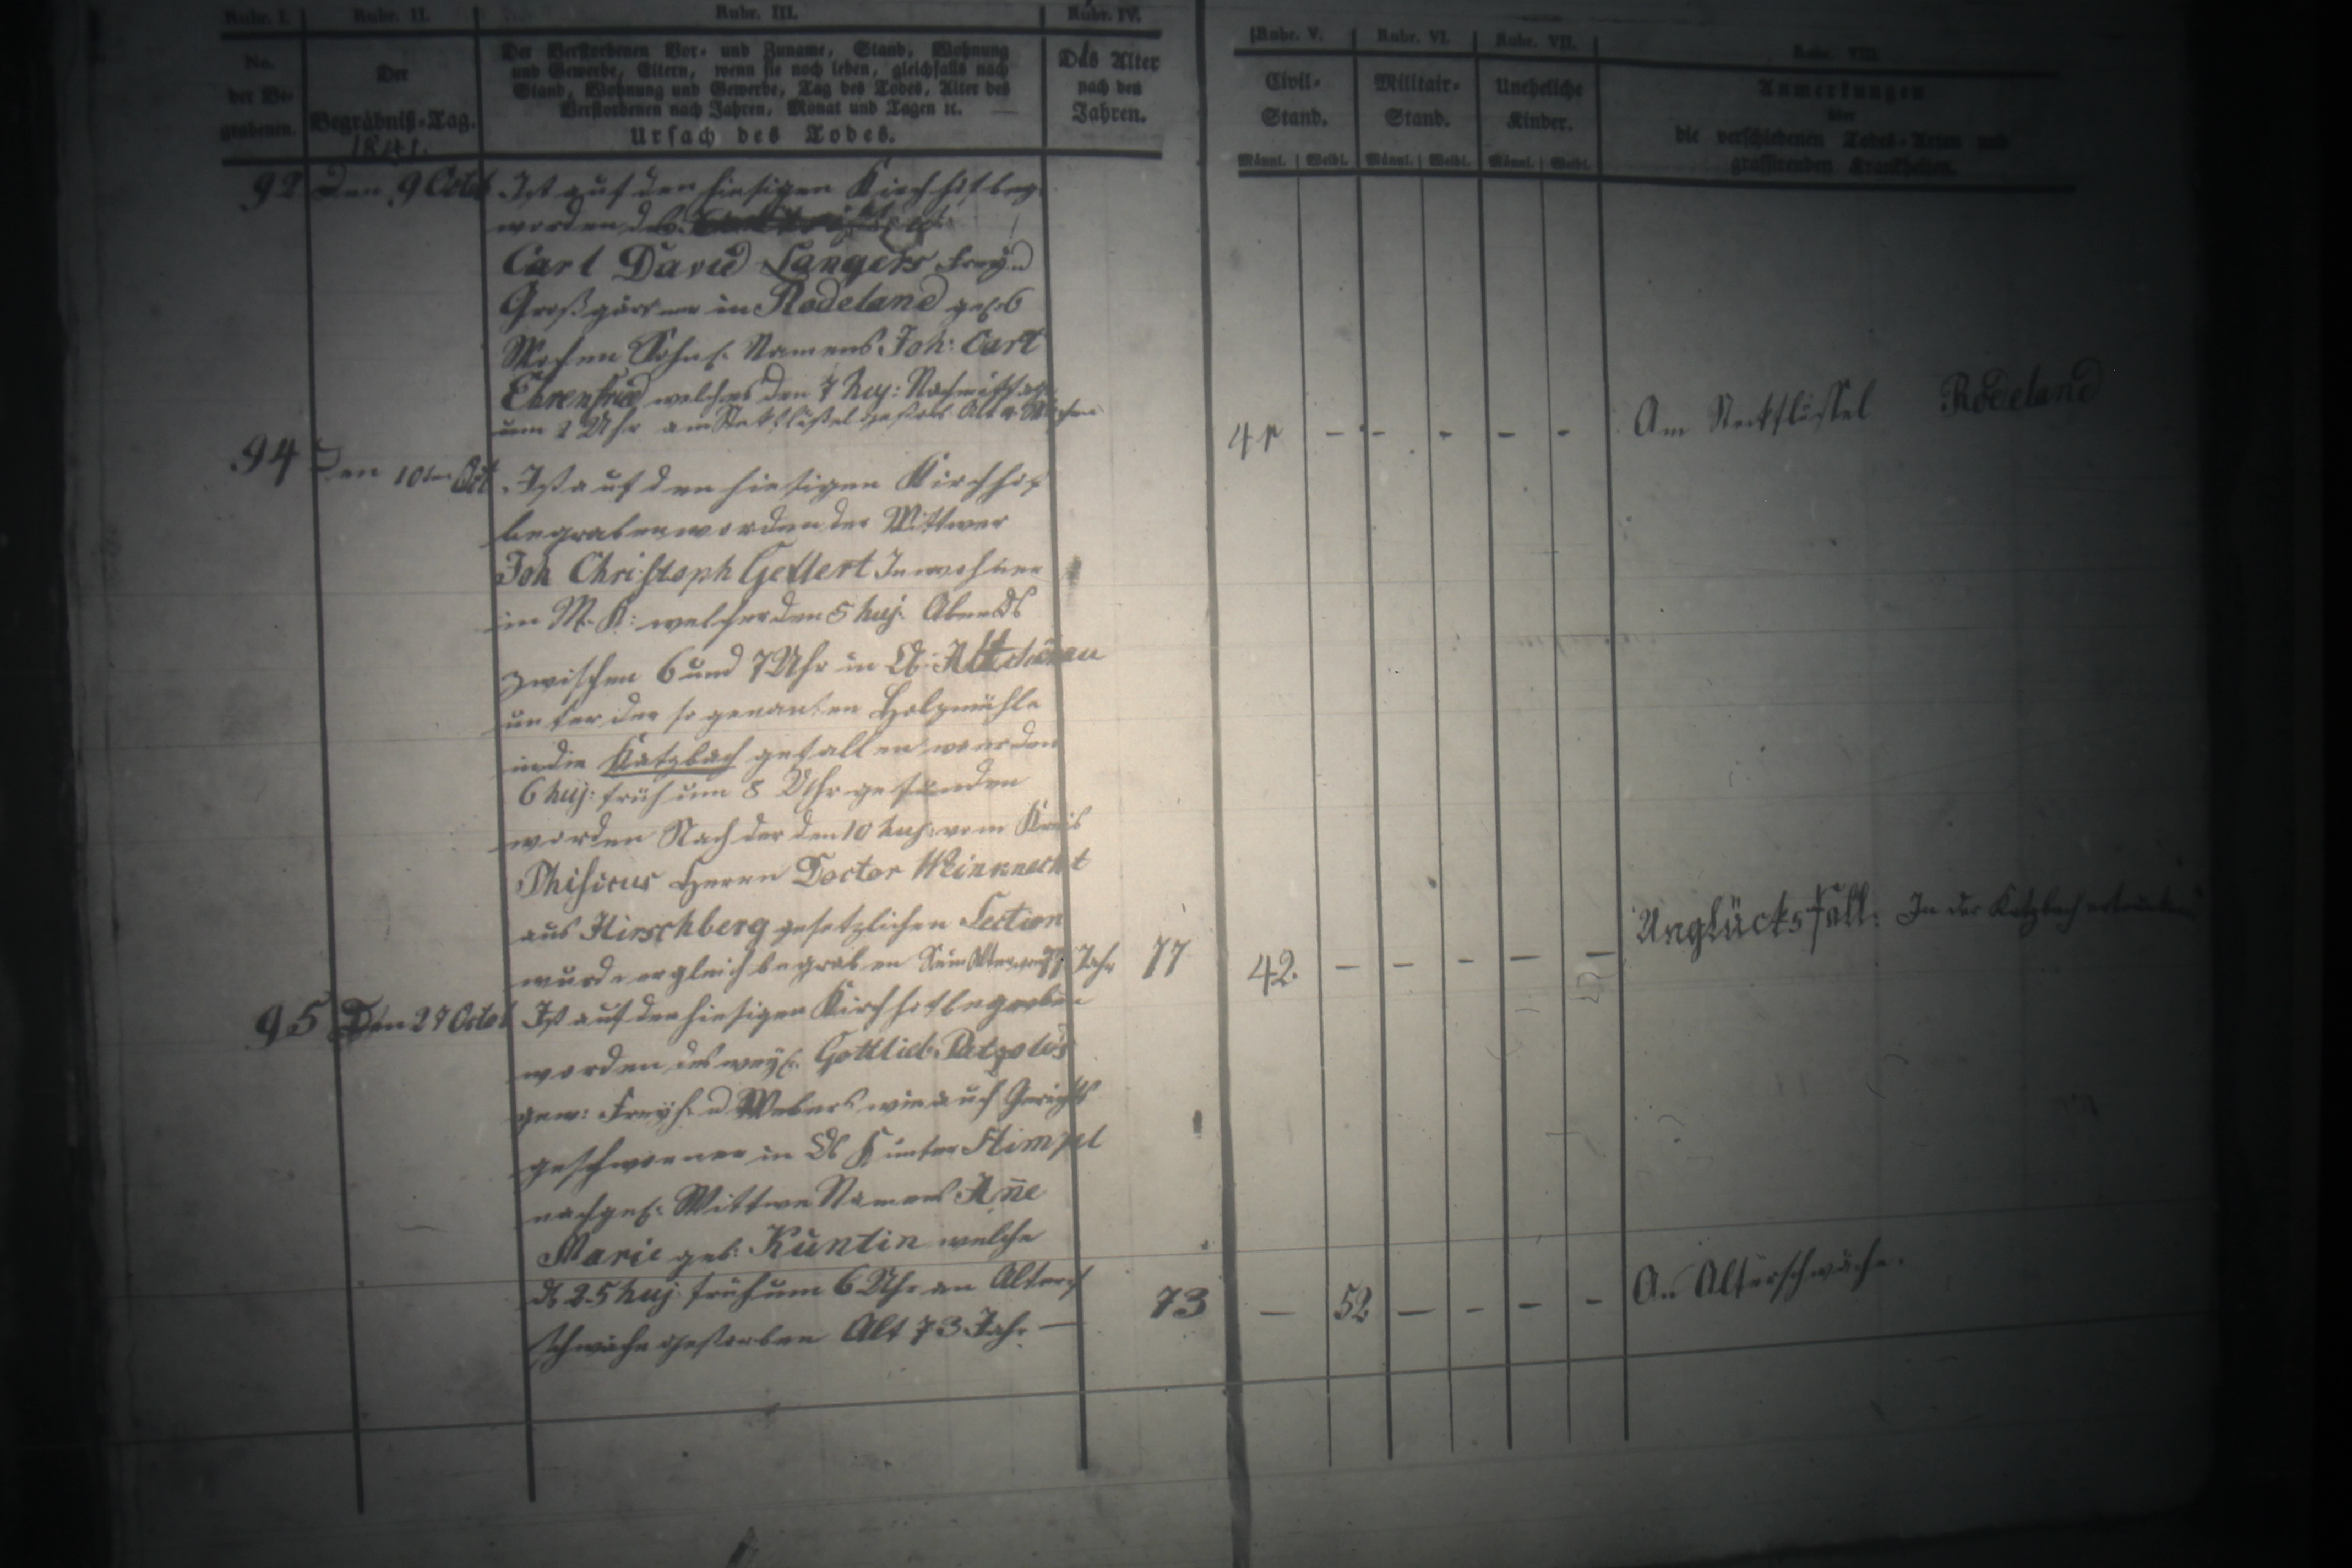 Rubr. I.
Rubr. II.
Rubr. III.
Rubr. IV.
Rubr. V.
Rubr. VI.
Rubr. VII.
Rubr. VIII.
No.
der Be-
grabenen.
Der
Begräbniß-Tag.
1841.
Der Verstorbenen Vor- und Zuname, Stand, Wohnung
und Gewerbe, Eltern, wenn sie noch leben, gleichfalls nach
Stand, Wohnung und Gewerbe, Tag des Todes, Alter des
Verstorbenen nach Jahren, Monat und Tagen ꝛc. —
Ursach des Todes.
Das Alter
nach den
Jahren.
Civil-
Stand.
Männl. Weibl.
Militair-
Stand.
Männl. Weibl.
Uneheliche
Kinder.
Männl. Weibl.
Anmerkungen
über
die verschiedenen Todes-Arten und
grassirenden Krankheiten.
92 Den 9 Octob Ist auf den hiesigen Kirchhof beg.
worden des
Carl David Langers Frey u
Großgärtner in Rodeland
Namens Joh: Carl
Ehrenfried welches den 7 huj: Nachmittag
um 2 Uhr am Stekflüßel gestorb Alt
41 - - - - - Am Stekflüssel Rodeland
94 Den 10ten Oct Ist auf den hiesigen Kirchhof
begraben worden der Wittwer
Joh Christoph Gellert Inwohner
in M. K: welcher den 5 huj: Abends
zwischen 6 und 7 Uhr in Ob:
unter der so genanten Holzmühle
in die Katzbach gefallen u worden
6 huj: früh um 8 Uhr gefunden
worden Nach der den 10 huj: vom Kreis
Phisicus Herrn Doctor Weinknecht
aus Hirschberg gesetzlichen Section
wurde er gleich begraben Sein Alter war 77 Jahr 77 42. - - - - - Unglücksfall: In der Katzbach ertrunken
95 Den 27 Octob Ist auf den hiesigen Kirchhof begraben
worden des weyl. Gottlieb Petzolds
gew: Freyh. u Webers wie auch Gerichts
geschworner in Ob K unter Stimpel
nachgel. Wittwe Namens Añe
Marie geb: Kuntin welche
d 25 huj: früh um 6 Uhr an Alters
schwäche gestorben Alt 73 Jahr — 73 — 52 — - - - An Altersschwäche.